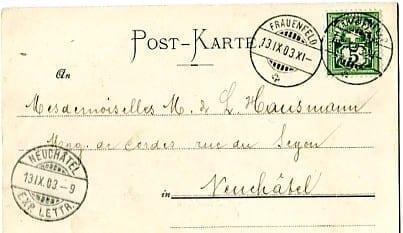 POST-KARTE
FRAUENFELD
13 IX 03 XI-
An
Mesdemoiselles M. & L. Hausmann
Mag. de Cordes rue du Seyon
NEUCHÂTEL
13 IX. 03 - 9
EXP. LETTR.
in Neuchâtel
5